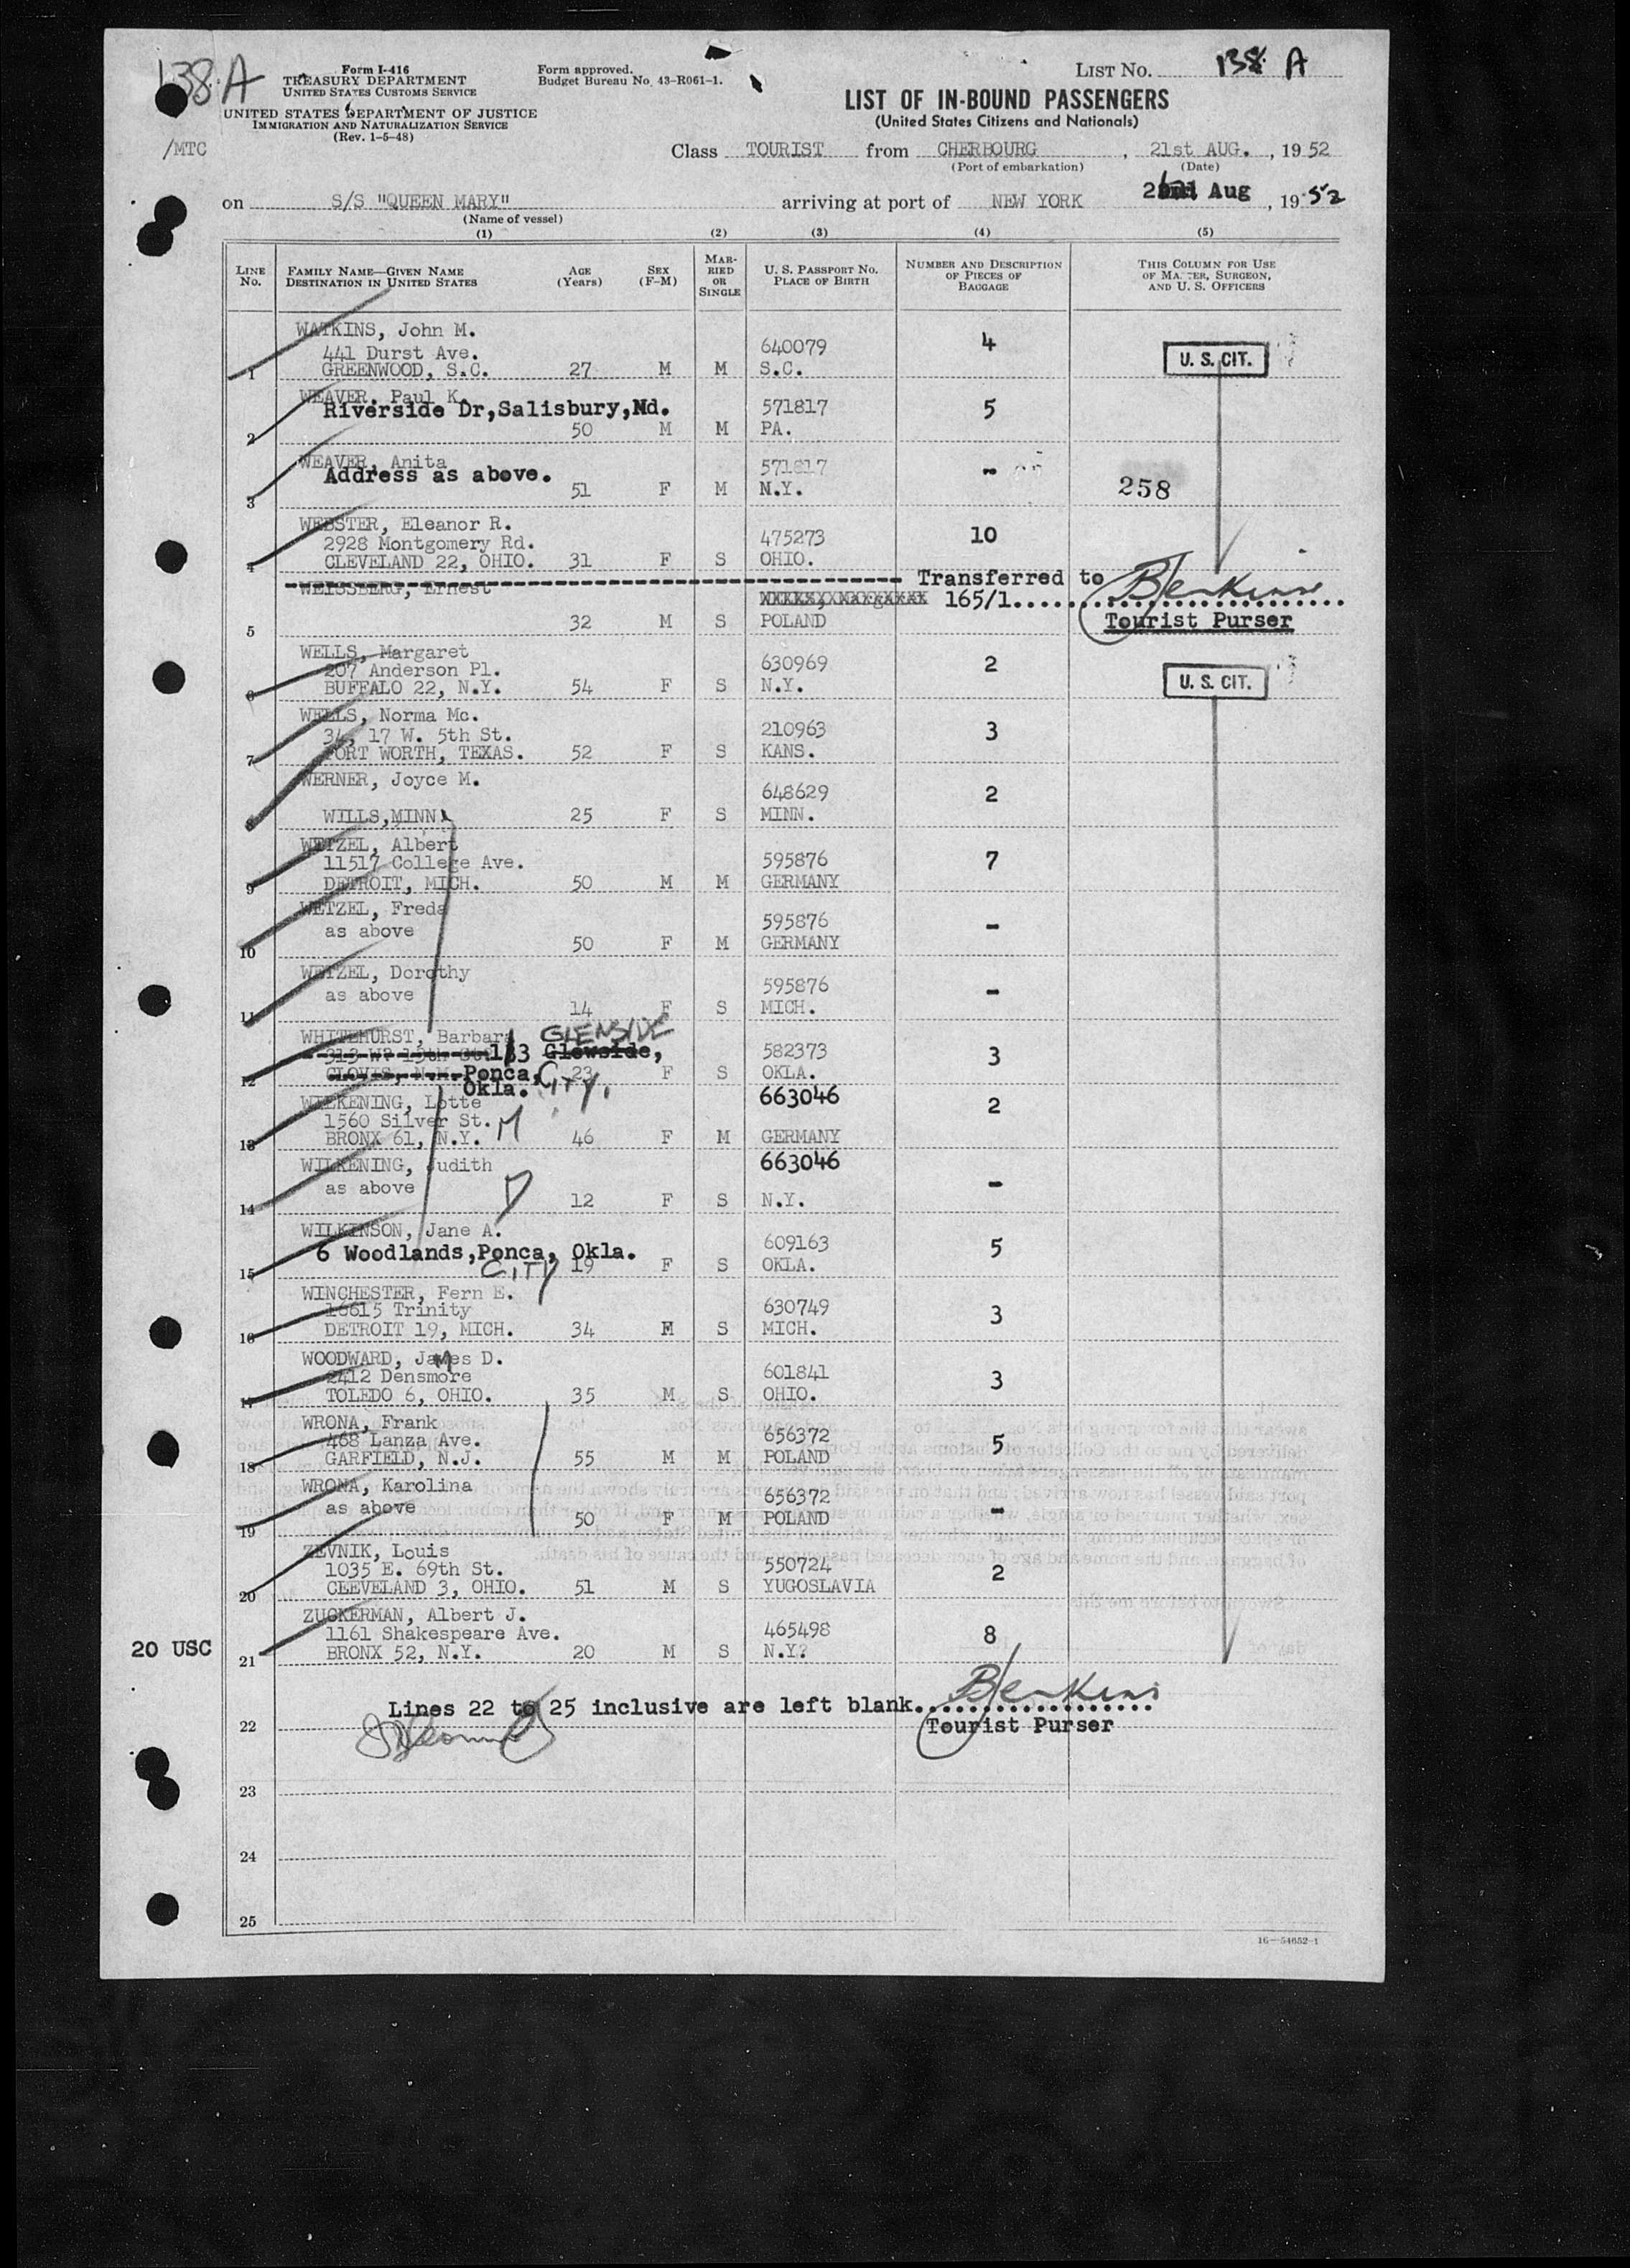 138 A
Form I-416
TREASURY DEPARTMENT
UNITED STATES CUSTOMS SERVICE
UNITED STATES DEPARTMENT OF JUSTICE
IMMIGRATION AND NATURALIZATION SERVICE
(Rev. 1-5-48)
Form approved.
Budget Bureau No. 43-R061-1.
LIST NO. 138 A
LIST OF IN-BOUND PASSENGERS
(United States Citizens and Nationals)
/MTC
Class TOURIST from CHERBOURG, 21st AUG., 1952
(Port of embarkation) (Date)
on S/S "QUEEN MARY" arriving at port of NEW YORK Aug, 1952
(Name of vessel)
(1) (2) (3) (4) (5)
LINE NO. FAMILY NAME—GIVEN NAME DESTINATION IN UNITED STATES AGE (Years) SEX (F-M) MARRIED OR SINGLE U. S. PASSPORT NO. PLACE OF BIRTH NUMBER AND DESCRIPTION OF PIECES OF BAGGAGE THIS COLUMN FOR USE OF MASTER, SURGEON, AND U. S. OFFICERS
WATKINS, John M.
441 Durst Ave. 640079 4 U. S. CIT.
1 GREENWOOD, S.C. 27 M M S.C.
WEAVER, Paul K.
Riverside Dr,Salisbury,Md. 571817 5
2 50 M M PA.
WEAVER, Anita 571817 -
Address as above.
3 51 F M N.Y. 258
WEBSTER, Eleanor R.
2928 Montgomery Rd. 475273 10
4 CLEVELAND 22, OHIO. 31 F S OHIO.
WEISSBERG, Ernest Transferred to
165/1
5 32 M S POLAND Tourist Purser
WELLS, Margaret
207 Anderson Pl. 630969 2 U. S. CIT.
6 BUFFALO 22, N.Y. 54 F S N.Y.
WELLS, Norma Mc.
34, 17 W. 5th St. 210963 3
7 FORT WORTH, TEXAS. 52 F S KANS.
WERNER, Joyce M.
648629 2
8 WILLS,MINN. 25 F S MINN.
WETZEL, Albert
11517 College Ave. 595876 7
9 DETROIT, MICH. 50 M M GERMANY
WETZEL, Freda
as above 595876 -
10 50 F M GERMANY
WETZEL, Dorothy
as above 595876 -
11 14 F S MICH.
WHITEHURST, Barbara GLENSIDE
313 W. 15th St. 183 Glewside, 582373 3
12 CLOVIS, N.M. Ponca, CITY. 23 F S OKLA.
Okla.
WILKENING, Lotte 663046
1560 Silver St. M 2
13 BRONX 61, N.Y. 46 F M GERMANY
WILKENING, Judith 663046
as above D -
14 12 F S N.Y.
WILKINSON, Jane A.
6 Woodlands,Ponca, Okla. 609163 5
15 CITY 19 F S OKLA.
WINCHESTER, Fern E.
16615 Trinity 630749 3
16 DETROIT 19, MICH. 34 F S MICH.
WOODWARD, James D.
2412 Densmore 601841 3
17 TOLEDO 6, OHIO. 35 M S OHIO.
WRONA, Frank
468 Lanza Ave. 656372 5
18 GARFIELD, N.J. 55 M M POLAND
WRONA, Karolina
as above 656372 -
19 50 F M POLAND
ZEVNIK, Louis
1035 E. 69th St. 550724 2
20 CLEVELAND 3, OHIO. 51 M S YUGOSLAVIA
ZUCKERMAN, Albert J.
1161 Shakespeare Ave. 465498 8
20 USC
21 BRONX 52, N.Y. 20 M S N.Y.
Lines 22 to 25 inclusive are left blank.
22 Tourist Purser
23
24
25
16—54652-1